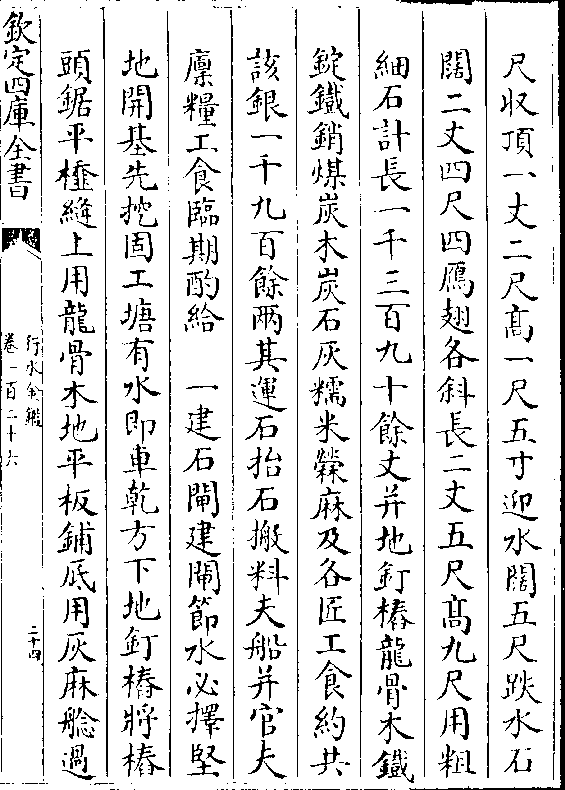 尺收頂一丈二尺髙一尺五寸迎水闊五尺跌水石
闊二丈四尺四鴈翅各斜長二丈五尺髙九尺用粗
細石計長一千三百九十餘丈并地釘樁龍骨木鐵
錠鐵銷煤炭木炭石灰糯米檾麻及各匠工食約共
該銀一千九百餘兩其運石抬石搬料夫船并官夫
廪糧工食臨期酌給　一建石閘建閘節水必擇堅
地開基先挖固工塘有水即車乾方下地釘樁將樁
頭鋸平橀縫上用龍骨木地平板鋪底用灰麻艌過
欽定四庫全書
行水金鑑
卷一百二十六
二十四